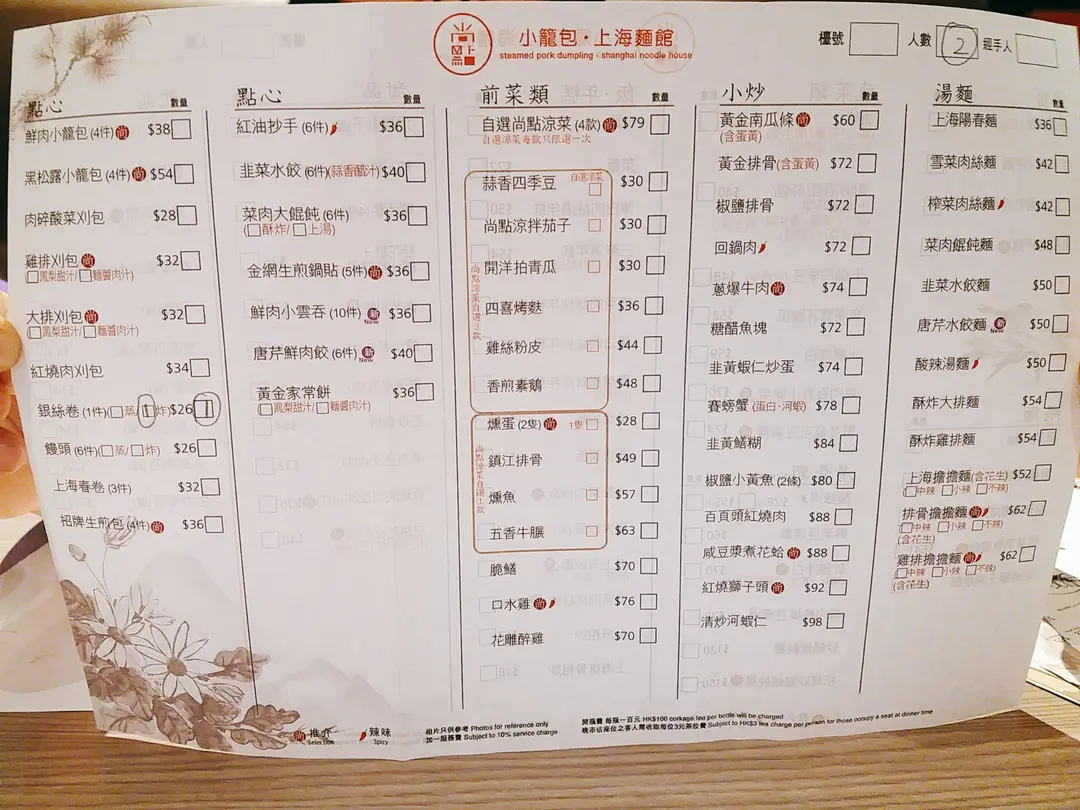 尚點
小籠包·上海麵館
steamed pork dumpling · shanghai noodle house
檯號
人數 2
經手人
點心 數量
鮮肉小籠包(4件)尚 $38
黑松露小籠包(4件)尚 $54
肉碎酸菜刈包 $28
雞排刈包尚 $32
鳳梨甜汁/麵醬肉汁
大排刈包尚 $32
鳳梨甜汁/麵醬肉汁
紅燒肉刈包 $34
銀絲卷(1件)(蒸/炸) $26 1
饅頭(6件)(蒸/炸) $26
上海春卷(3件) $32
招牌生煎包(4件)尚 $36
點心 數量
紅油抄手(6件) $36
韮菜水餃(6件)(蒜香醋汁) $40
菜肉大餛飩(6件) $36
(酥炸/上湯)
金網生煎鍋貼(5件)尚 $36
鮮肉小雲吞(10件)新 New $36
唐芹鮮肉餃(6件)新 New $40
黃金家常餅 $36
(鳳梨甜汁/麵醬肉汁)
前菜類 數量
自選尚點涼菜(4款)尚 $79
自選涼菜每款只限選一次
自選涼菜
尚點涼菜自選3款
蒜香四季豆 $30
尚點涼拌茄子 $30
開洋拍青瓜 $30
四喜烤麩 $36
雞絲粉皮 $44
香煎素鵝 $48
尚點涼菜自選1款
燻蛋(2隻)尚 1隻 $28
鎮江排骨 $49
燻魚 $57
五香牛𦟌 $63
脆鱔 $70
口水雞尚 $76
花雕醉雞 $70
小炒 數量
黃金南瓜條尚 $60
(含蛋黃)
黃金排骨(含蛋黃) $72
椒鹽排骨 $72
回鍋肉 $72
蔥爆牛肉尚 $74
糖醋魚塊 $72
韮黃蝦仁炒蛋 $74
賽螃蟹(蛋白·河蝦) $78
韮黃鱔糊 $84
椒鹽小黃魚(2條) $80
百頁頭紅燒肉 $88
咸豆漿煮花蛤尚 $88
紅燒獅子頭尚 $92
清炒河蝦仁 $98
湯麵 數量
上海陽春麵 $36
雪菜肉絲麵 $42
榨菜肉絲麵 $42
菜肉餛飩麵 $48
韮菜水餃麵 $50
唐芹水餃麵新 New $50
酸辣湯麵 $50
酥炸大排麵 $54
酥炸雞排麵 $54
上海擔擔麵(含花生) $52
(中辣 小辣 不辣)
排骨擔擔麵尚 $62
(中辣 小辣 不辣)
(含花生)
雞排擔擔麵尚 $62
(中辣 小辣 不辣)
(含花生)
尚 推介 Selection
辣味 Spicy
相片只供參考 Photos for reference only
加一服務費 Subject to 10% service charge
開瓶費 每瓶一百元 HK$100 corkage fee per bottle will be charged
晚市佔座位之客人需收取每位3元茶位費 Subject to HK$3 tea charge per person for those occupy a seat at dinner time